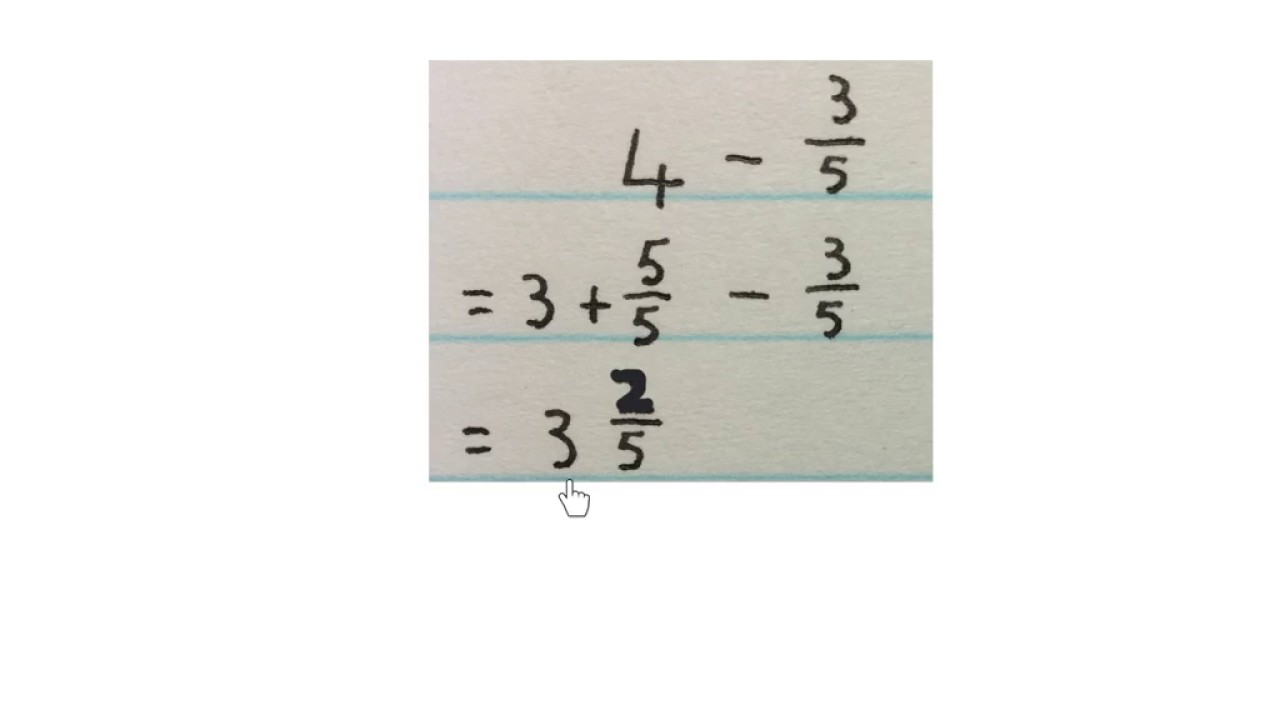 4 - 3/5
= 3 + 5/5 - 3/5
= 3 2/5